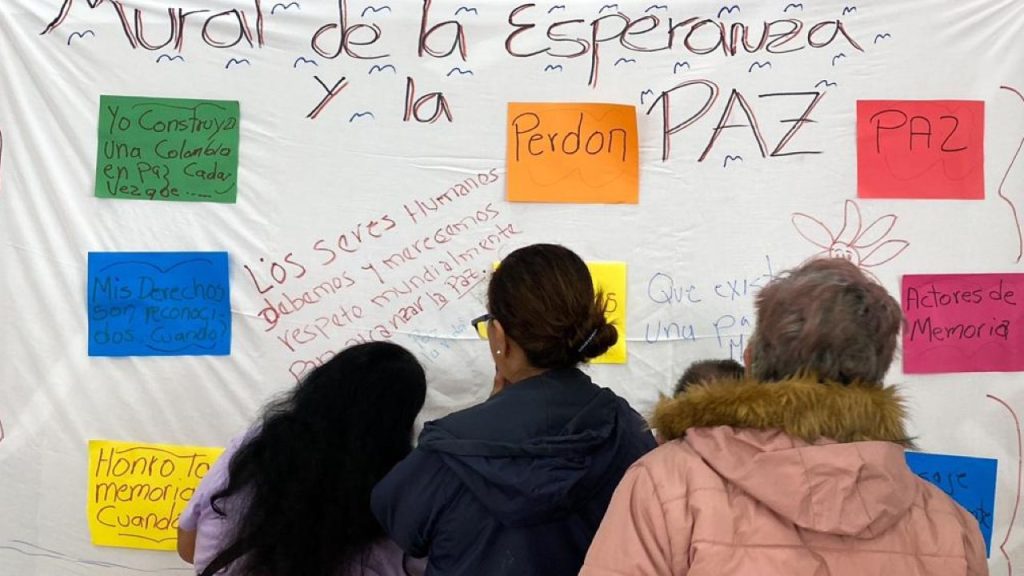 Mural de la Esperanza
Y la PAZ
Yo Construyo
Una Colombia
en Paz Cada
Vez que.....
Perdon
PAZ
Los seres Humanos
debemos y merecemos
respeto mundialmente
alcanzar la Paz
Mis Derechos
son reconoci-
dos. Cuando?
Que
una
Actores de
Memoria
Honro Tu
memoria
Cuando